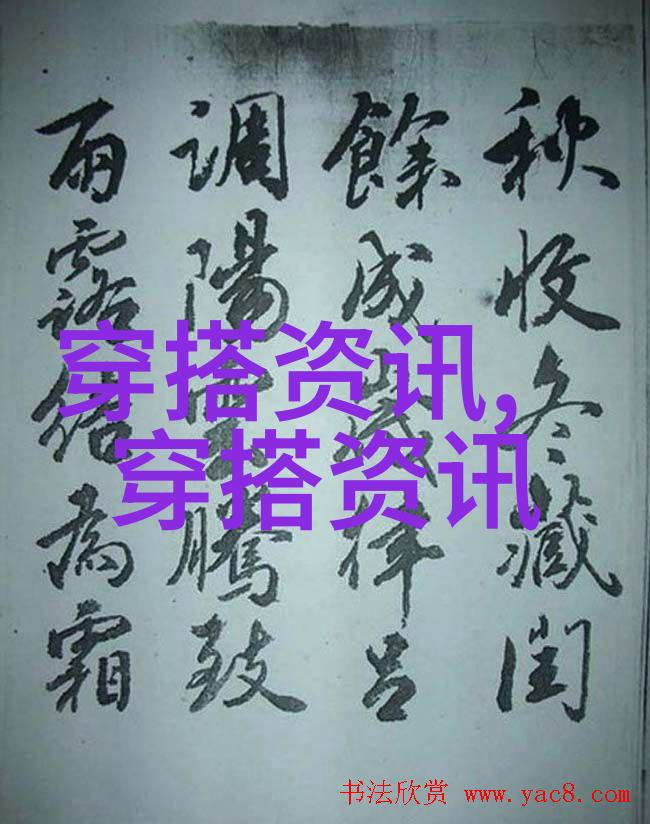 秋收冬藏閏
餘成歲律呂
調陽雲騰致
雨露結為霜
穿搭资讯,
穿搭资讯
书法欣赏 www.yac8.com